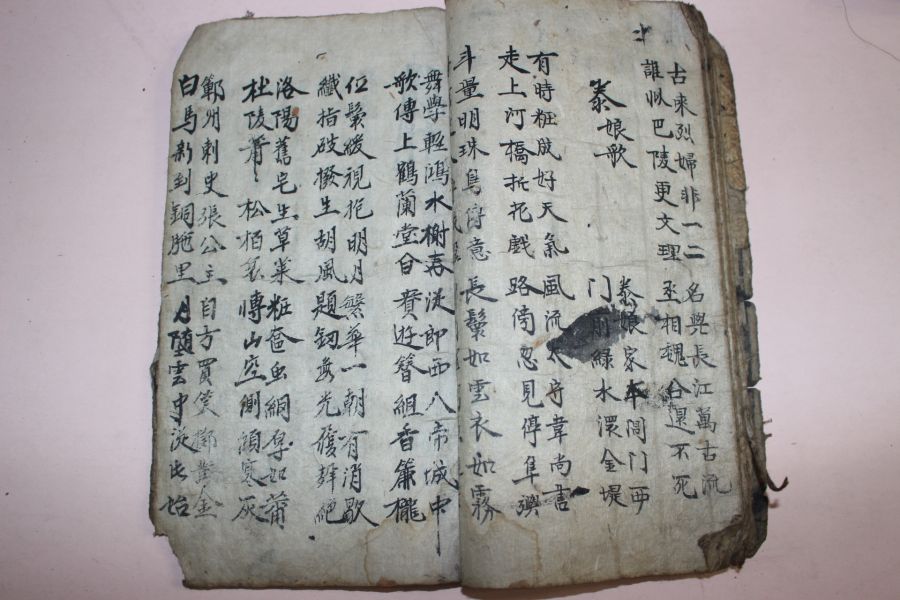 古來烈婦非一二 名與長江萬古流
誰似巴陵更文理 丞相魏公還不死
泰娘歌 泰娘家本閶門西
門前綠水濃金堤
有時粧成好天氣 風流太守韋尚書
走上河橋折花戲 路傍忽見停隼旟
斗量明珠鳥傳意 長鬟如雲衣如霧
舞學輕鴻水榭春 從郎西入帝城中
歌傳上鶴蘭堂合 貴遊簪組香簾櫳
低鬟緩視抱明月 繁華一朝有消歇
纖指破撥生胡風 題劒無光履聲絕
洛陽舊宅生草萊 粧奩虫網厚如
杜陵蕭〻松栢哀 博山空側傾寒灰
鄿州刺史張公主 自方買笑擲黃金
白馬新到銅駝里 月墮雲中從此始